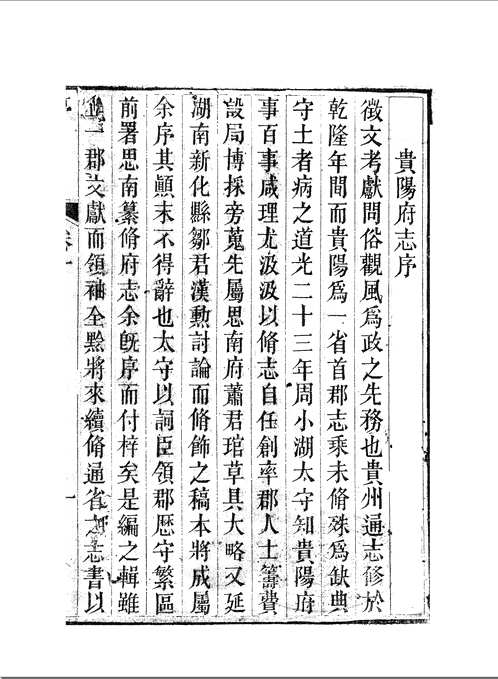 貴陽府志序
徵文考獻問俗觀風爲政之先務也貴州通志修於
乾隆年間而貴陽爲一省首郡志乘未脩殊爲缺典
守土者病之道光二十三年周小湖太守知貴陽府
事百事咸理尤汲汲以脩志自任創率郡人士籌費
設局博採旁蒐先屬思南府蕭君琯草具大略又延
湖南新化縣鄒君漢勳討論而脩飾之稿本將成屬
余序其顚末不得辭也太守以詞臣領郡歴守繁區
前署思南纂脩府志余旣序而付梓矣是編之輯雖
一郡文獻而領袖全黔將來續脩通省之志書以